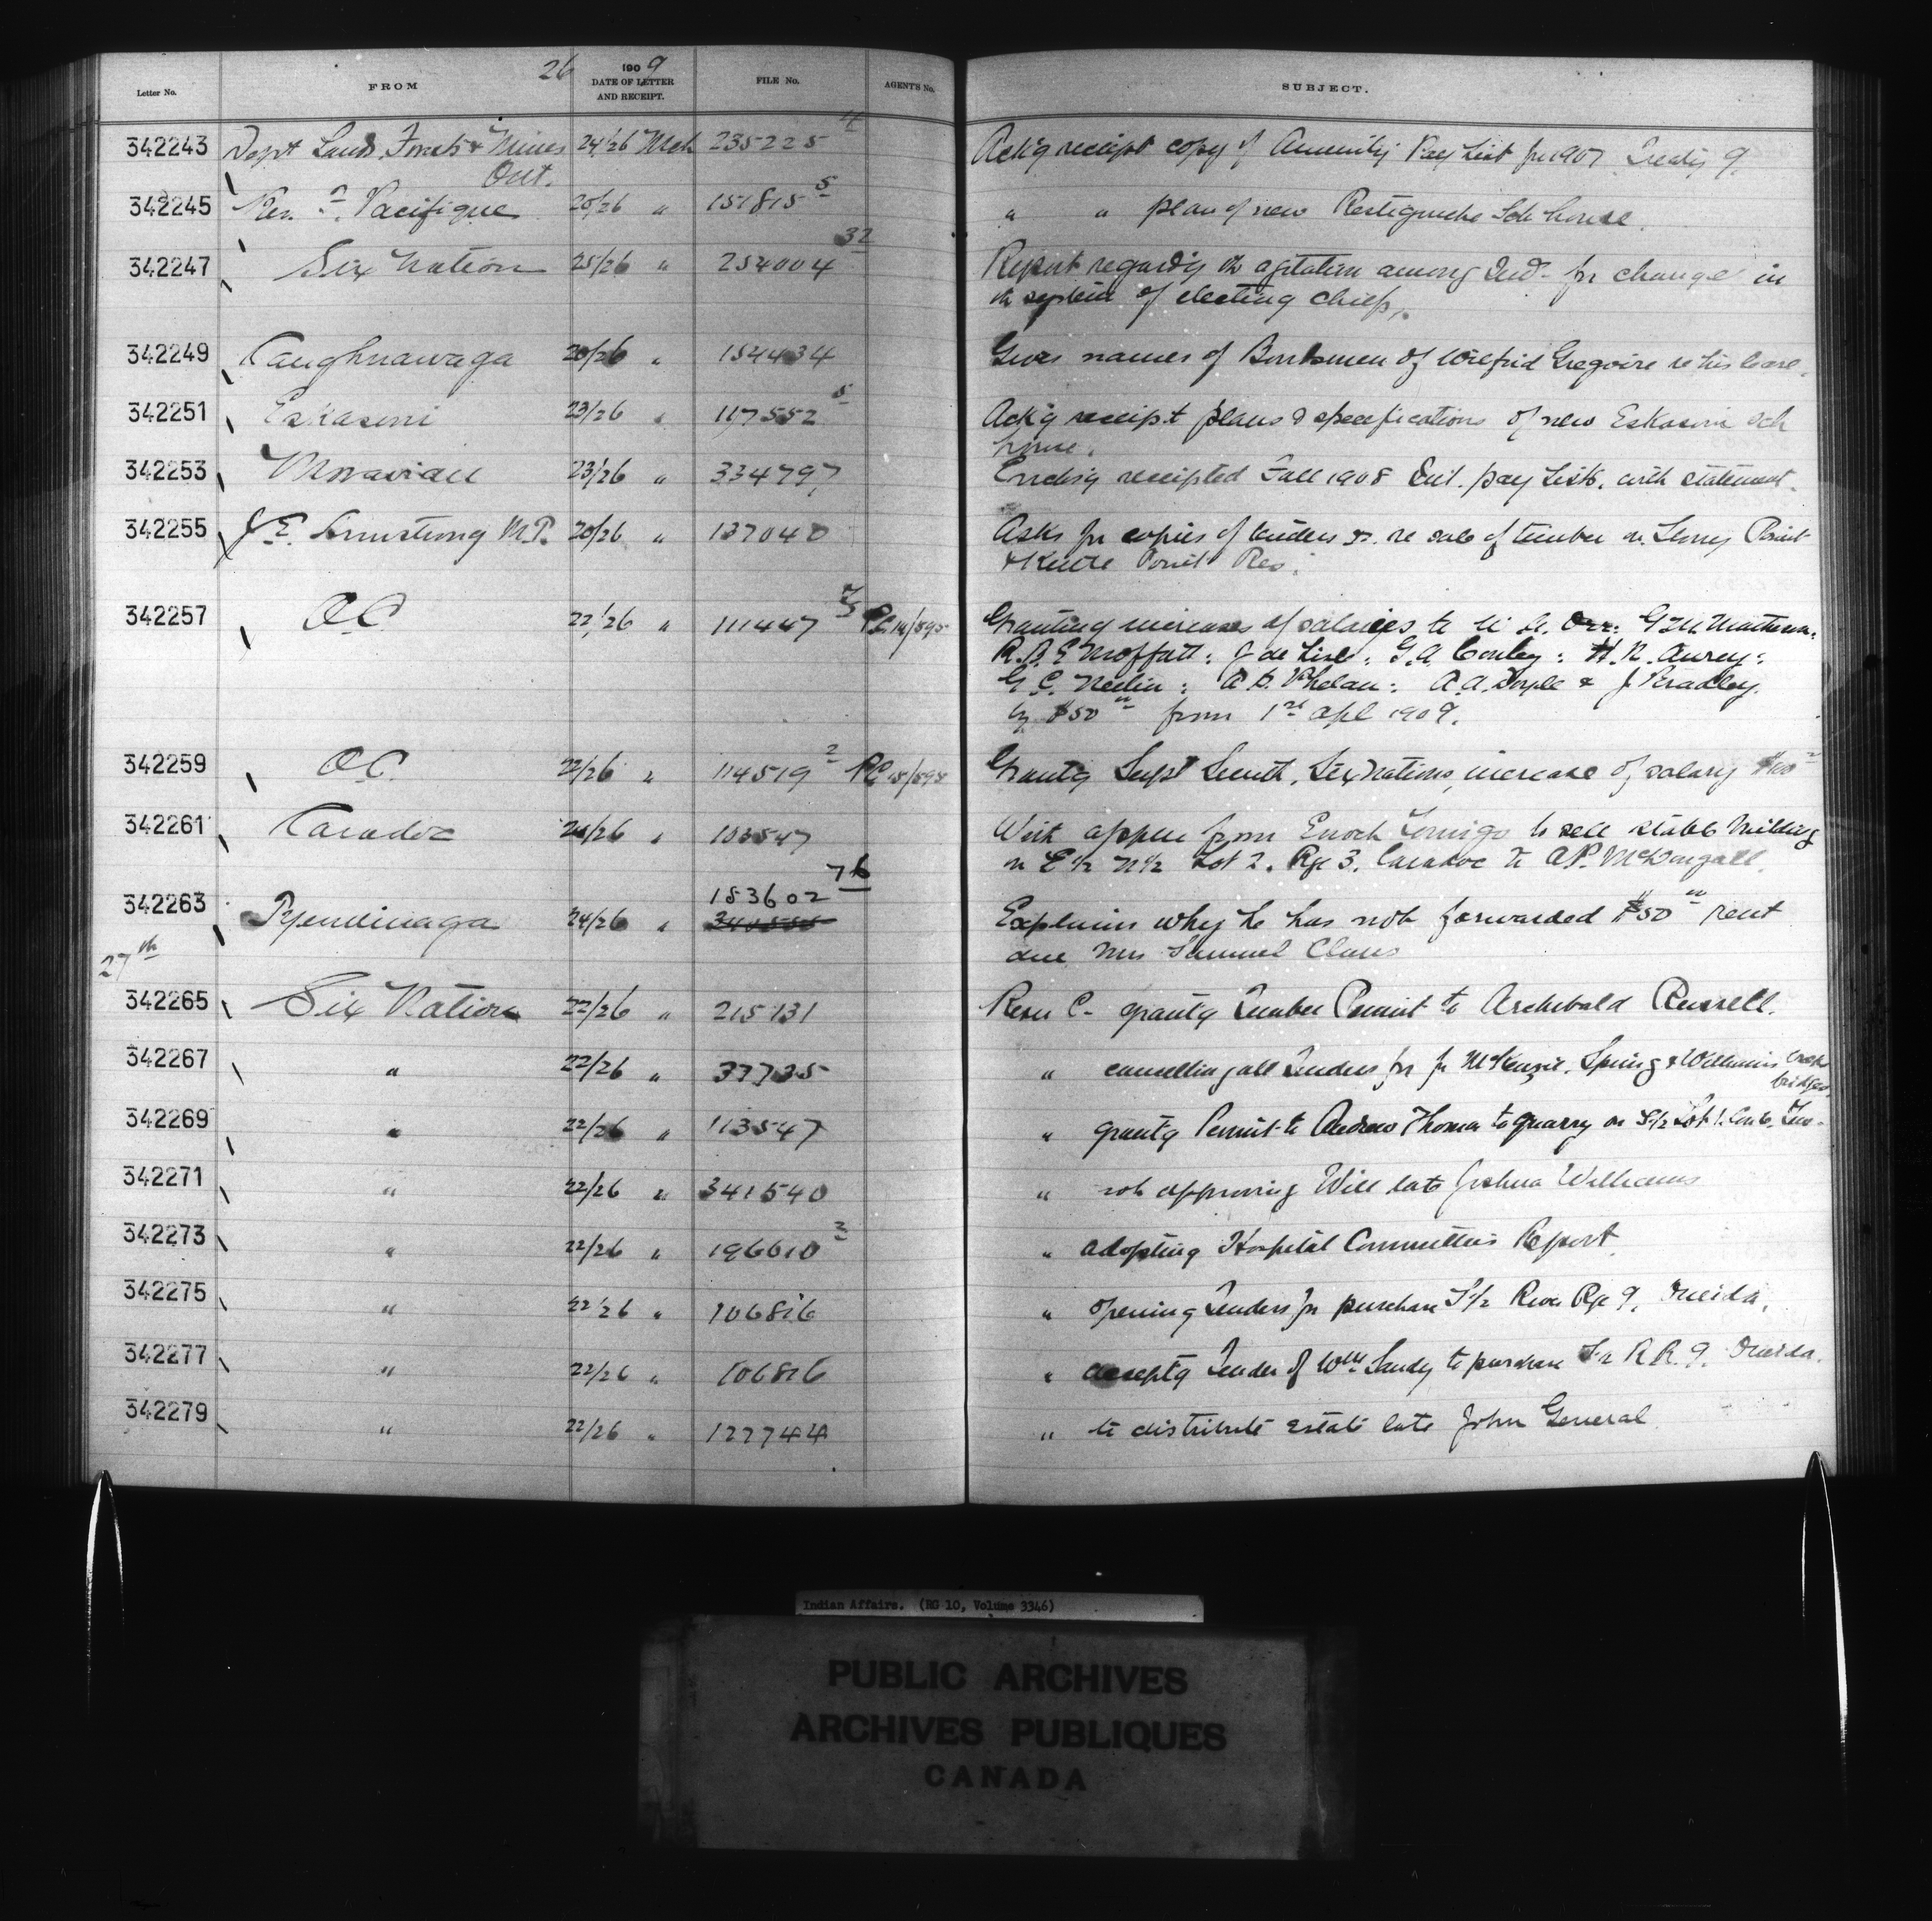 26
Letter No. FROM 1909 DATE OF LETTER AND RECEIPT. FILE No. AGENTS No. SUBJECT.
342243 Dept Lands, Forests & Mines Ont. 24/26 Mch 235225 4 Ackg receipt copy of Annuity Pay List for 1907 Treaty 9.
342245 Rev. F. Pacifique 20/26 " 151815 5 " " plan of new Restigouche Sch house.
342247 Six Nation 25/26 " 254004 32 Report regardg the agitation among Inds for change in
the system of electing chiefs.
342249 Caughnawaga 20/26 " 154434 Gives names of Bondsmen of Wilfrid Gregoire re his lease.
342251 Eskasoni 23/26 " 117552 5 Ackg receipt plans & specifications of new Eskasoni sch
house.
342253 Moravian 23/26 " 334797 Enclosg receipted Fall 1908 Int. pay lists, with statement.
342255 J. E. Armstrong M.P. 20/26 " 137040 Asks for copies of tenders &c. re sale of timber on Stony Point
& Kettle Point Res.
342257 O.C. 22/26 " 111447 PC 14/595 Granting increases of salaries to Orr: G.M. Matheson:
R.B.E. Moffatt: J. de Lisle: G.A. Conley: H.N. Awrey:
A.B. Phelan: A.A. Doyle & J. Bradley.
by $50 00 from 1st Apl 1909.
342259 O.C. 22/26 " 114519 2 PC 15/595 Grantg Supt Smith, Six Nations, increase of salary $100
342261 Caradoc 24/26 " 103547 With appln from Enoch to sell stable building
on E½ N½ Lot 2, Rge 3, Caradoc to A.P. McDougall
342263 Tyendinaga 24/26 " 183602 76 Explains why he has not forwarded $50 00 rent
due Mrs Samuel Claus
27th
342265 Six Nation 22/26 " 215731 Resn C- grantg Timber Permit to Archibald Russell.
342267 " 22/26 " 37735 " cancelling all Tenders for McKenzie, Spring & Williams Creek
bridges
342269 " 22/26 " 113547 " grantg Permit to Andrew Thomas to quarry on S½ Lot 1. Con 6. Tus.
342271 " 22/26 " 341540 " not approving Will late Joshua Williams
342273 " 22/26 " 196610 3 " adopting Hospital Committees Report
342275 " 22/26 " 106816 " opening Tenders for purchase S½ River Rge 9, Oneida,
342277 " 22/26 " 106816 " acceptg Tender of Wm Sandy to purchase S½ R.R. 9. Oneida.
342279 " 22/26 " 122744 " to distribute estate late John General
Indian Affairs. (RG 10, Volume 3346)
PUBLIC ARCHIVES
ARCHIVES PUBLIQUES
CANADA